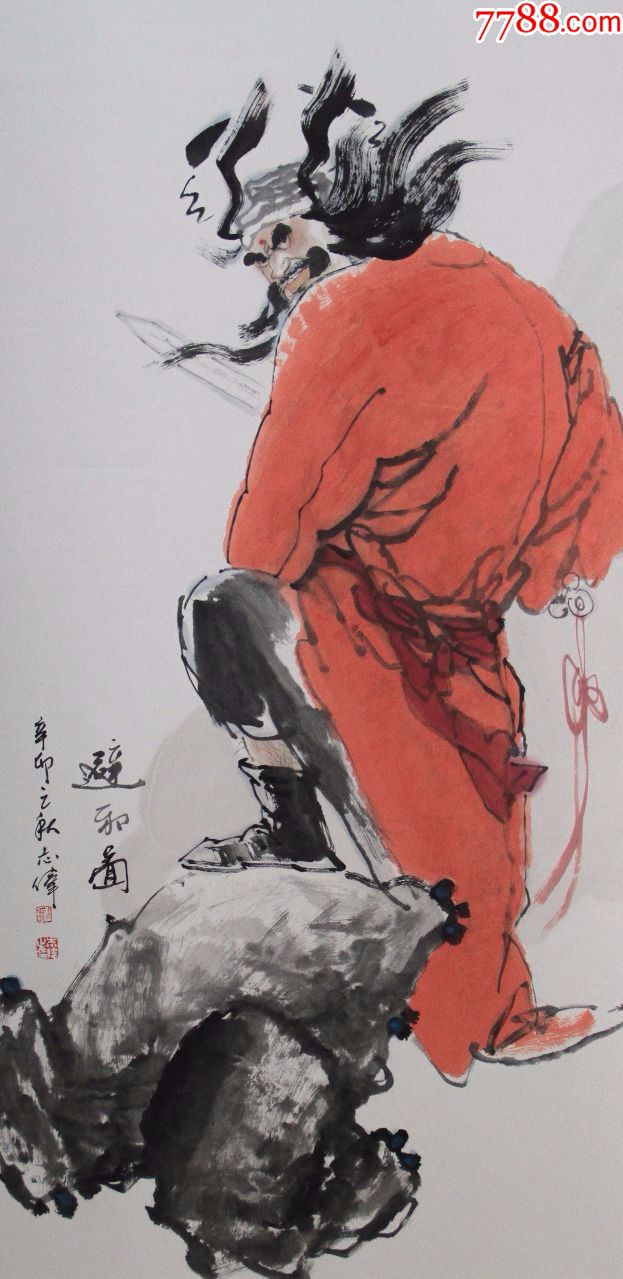 7788.com
避邪圖
辛卯之秋志偉